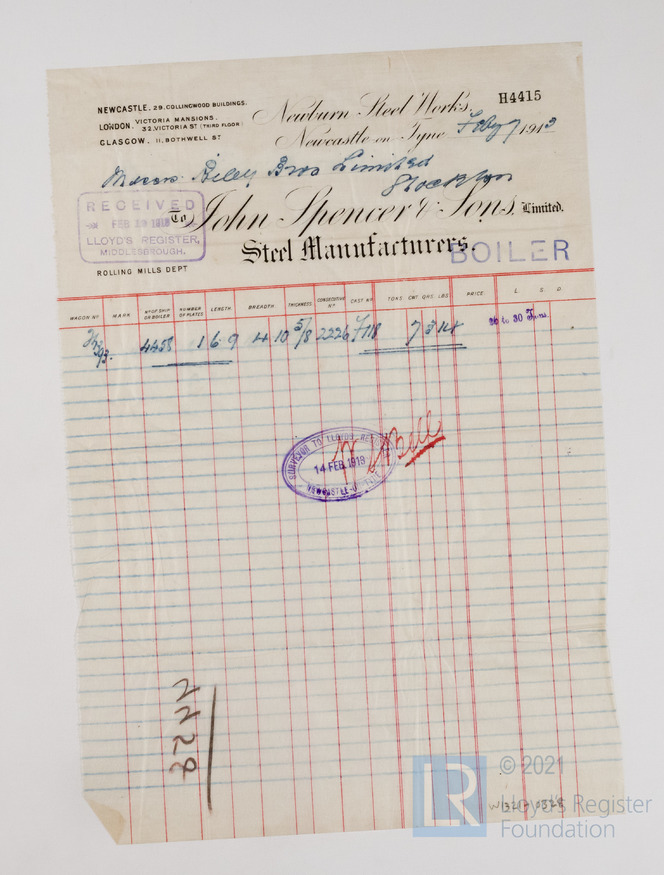 NEWCASTLE. 29. COLLINGWOOD BUILDINGS.
LONDON. VICTORIA MANSIONS.
32. VICTORIA ST (THIRD FLOOR)
GLASGOW. 11, BOTHWELL ST
H4415
Newburn Steel Works.
Newcastle on Tyne Feby 7 1913
Messrs. Riley Bros Limited
Stockton
RECEIVED
LLOYD'S REGISTER,
MIDDLESBROUGH.
To John Spencer & Sons, Limited.
Steel Manufacturers.
BOILER
ROLLING MILLS DEPT
WAGON No MARK No OF SHIP OR BOILER NUMBER OF PLATES LENGTH BREADTH THICKNESS CONSECUTIVE No CAST No TONS CWT QRS LBS PRICE L. S. D.
4458 1 6 9 4 10 5/8 2226 7118 7 3 14 26 to 30 Tons.
SURVEYOR TO LLOYD'S
14 FEB 1913
NEWCASTLE
Bell
© 2021
LR
Lloyd's Register
Foundation